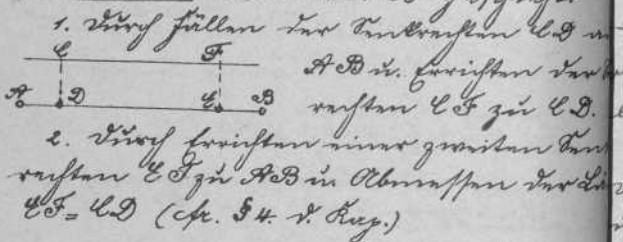 1. Durch Fällen der Senkrechten CD a
C F
AB u. Errichten der
A D E B
rechten CF zu CD.
2. Durch Errichten einer zweiten Sen
rechten EF zu AB u. Abmessen der Lä
EF = CD (cfr. § 4. d. Kap.)